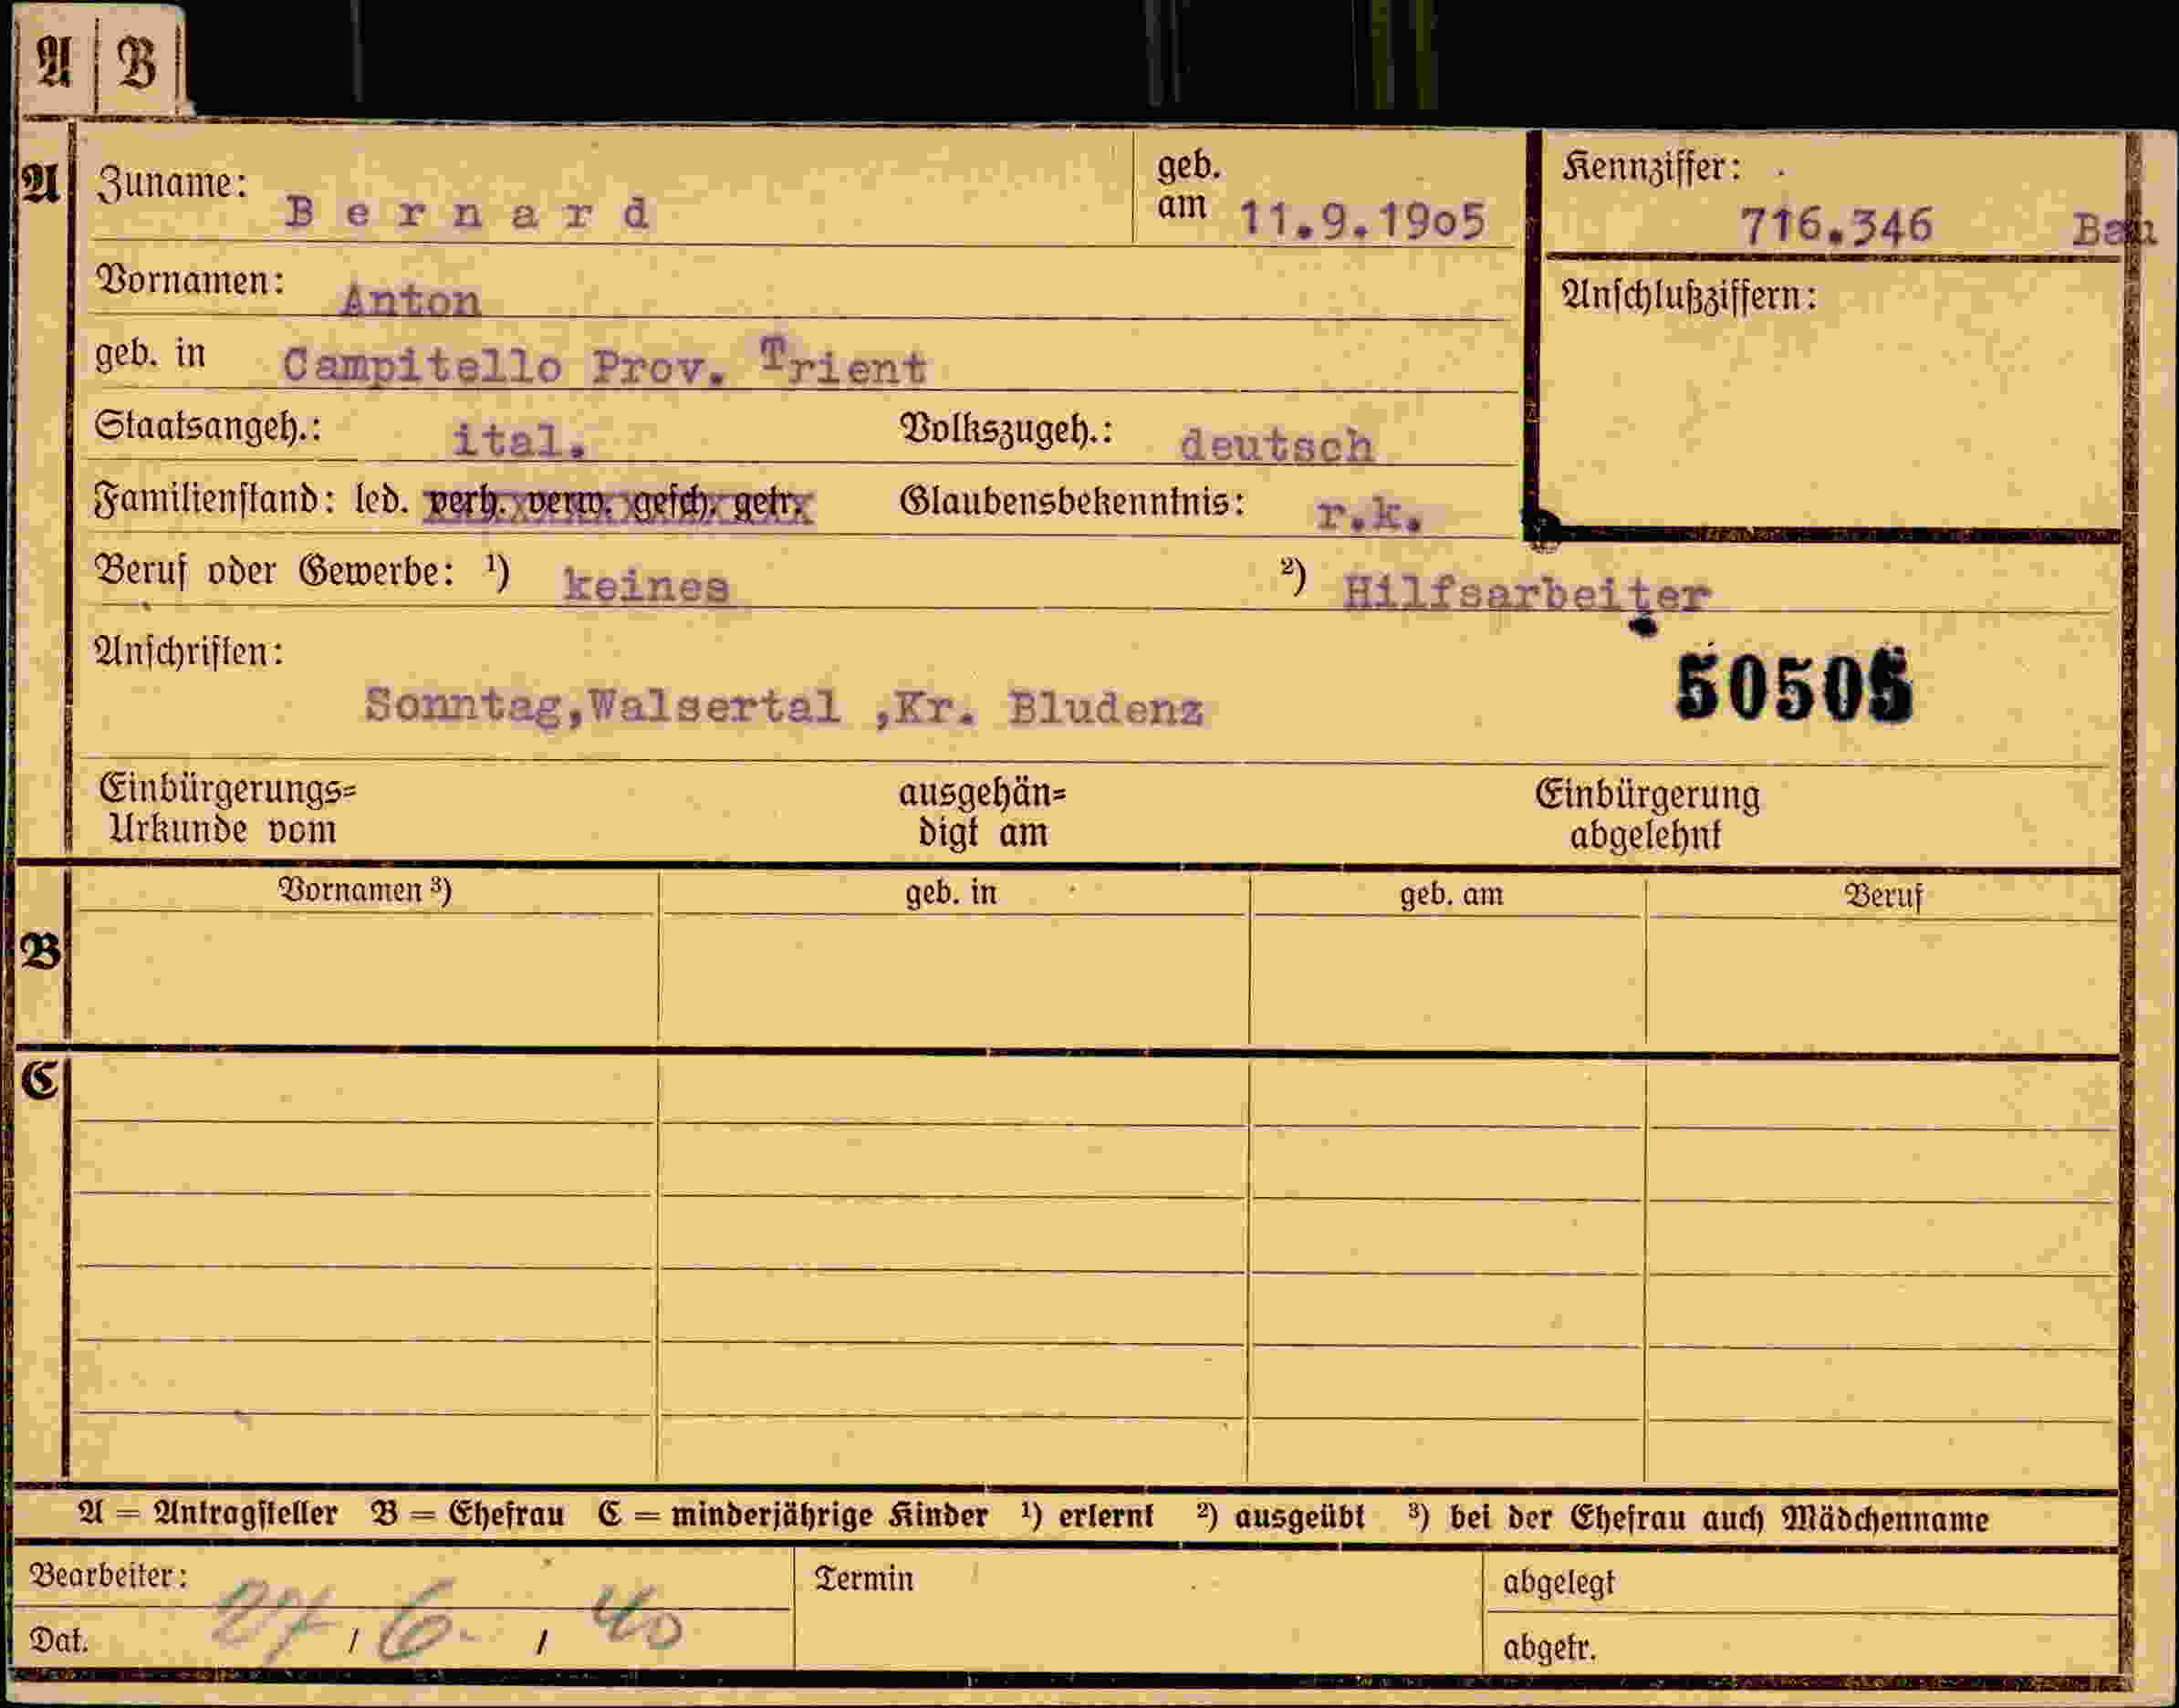 A B
A
Zuname: Bernard geb. am 11.9.1905
Kennziffer: 716.346 Bau
Vornamen: Anton
Anschlußziffern:
geb. in Campitello Prov. Trient
Staatsangeh.: ital. Volkszugeh.: deutsch
Familienstand: led. verh. verw. gesch. getr. Glaubensbekenntnis: r.k.
Beruf oder Gewerbe: ¹) keines ²) Hilfsarbeiter
Anschriften:
Sonntag,Walsertal ,Kr. Bludenz
Einbürgerungs= Urkunde vom
ausgehän= digt am
Einbürgerung abgelehnt
B
Vornamen ³) geb. in geb. am Beruf
C
A = Antragsteller B = Ehefrau C = minderjährige Kinder ¹) erlernt ²) ausgeübt ³) bei der Ehefrau auch Mädchenname
Bearbeiter: Termin abgelegt
Dat. 27 / 6. / 40 abgetr.